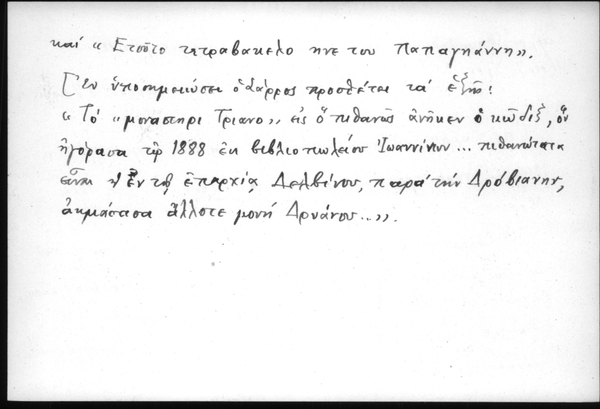 καί « Ετοῦτο τητραβακελο ηνε του Παπαγηάννη».
Ἐν ὑποσημειώσει ὁ Λάμρος προσθέτει τά ἑξῆς:
« Τό « μοναστηρι Τριανο», εἰς ὅ πιθανῶς ἀνῆκεν ὁ κῶδιξ, ὅν
ἠγόρασα τῷ 1888 ἐκ βιβλιοπωλείου Ἰωαννίνων ... πιθανώτατα
εἶναι ἡ ἐν τῇ ἐπαρχίᾳ Δελβίνου, παρά τήν Δρόβιανην,
ἀκμάσασα ἄλλοτε μονή Δρυάνου ...».